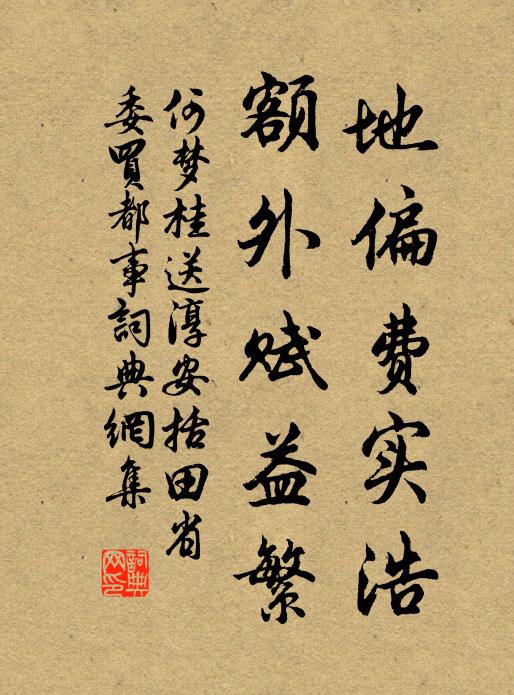 地偏费实浩
额外赋益繁
何梦桂送淳安括田省
委買都事詞典網集
詞典网印